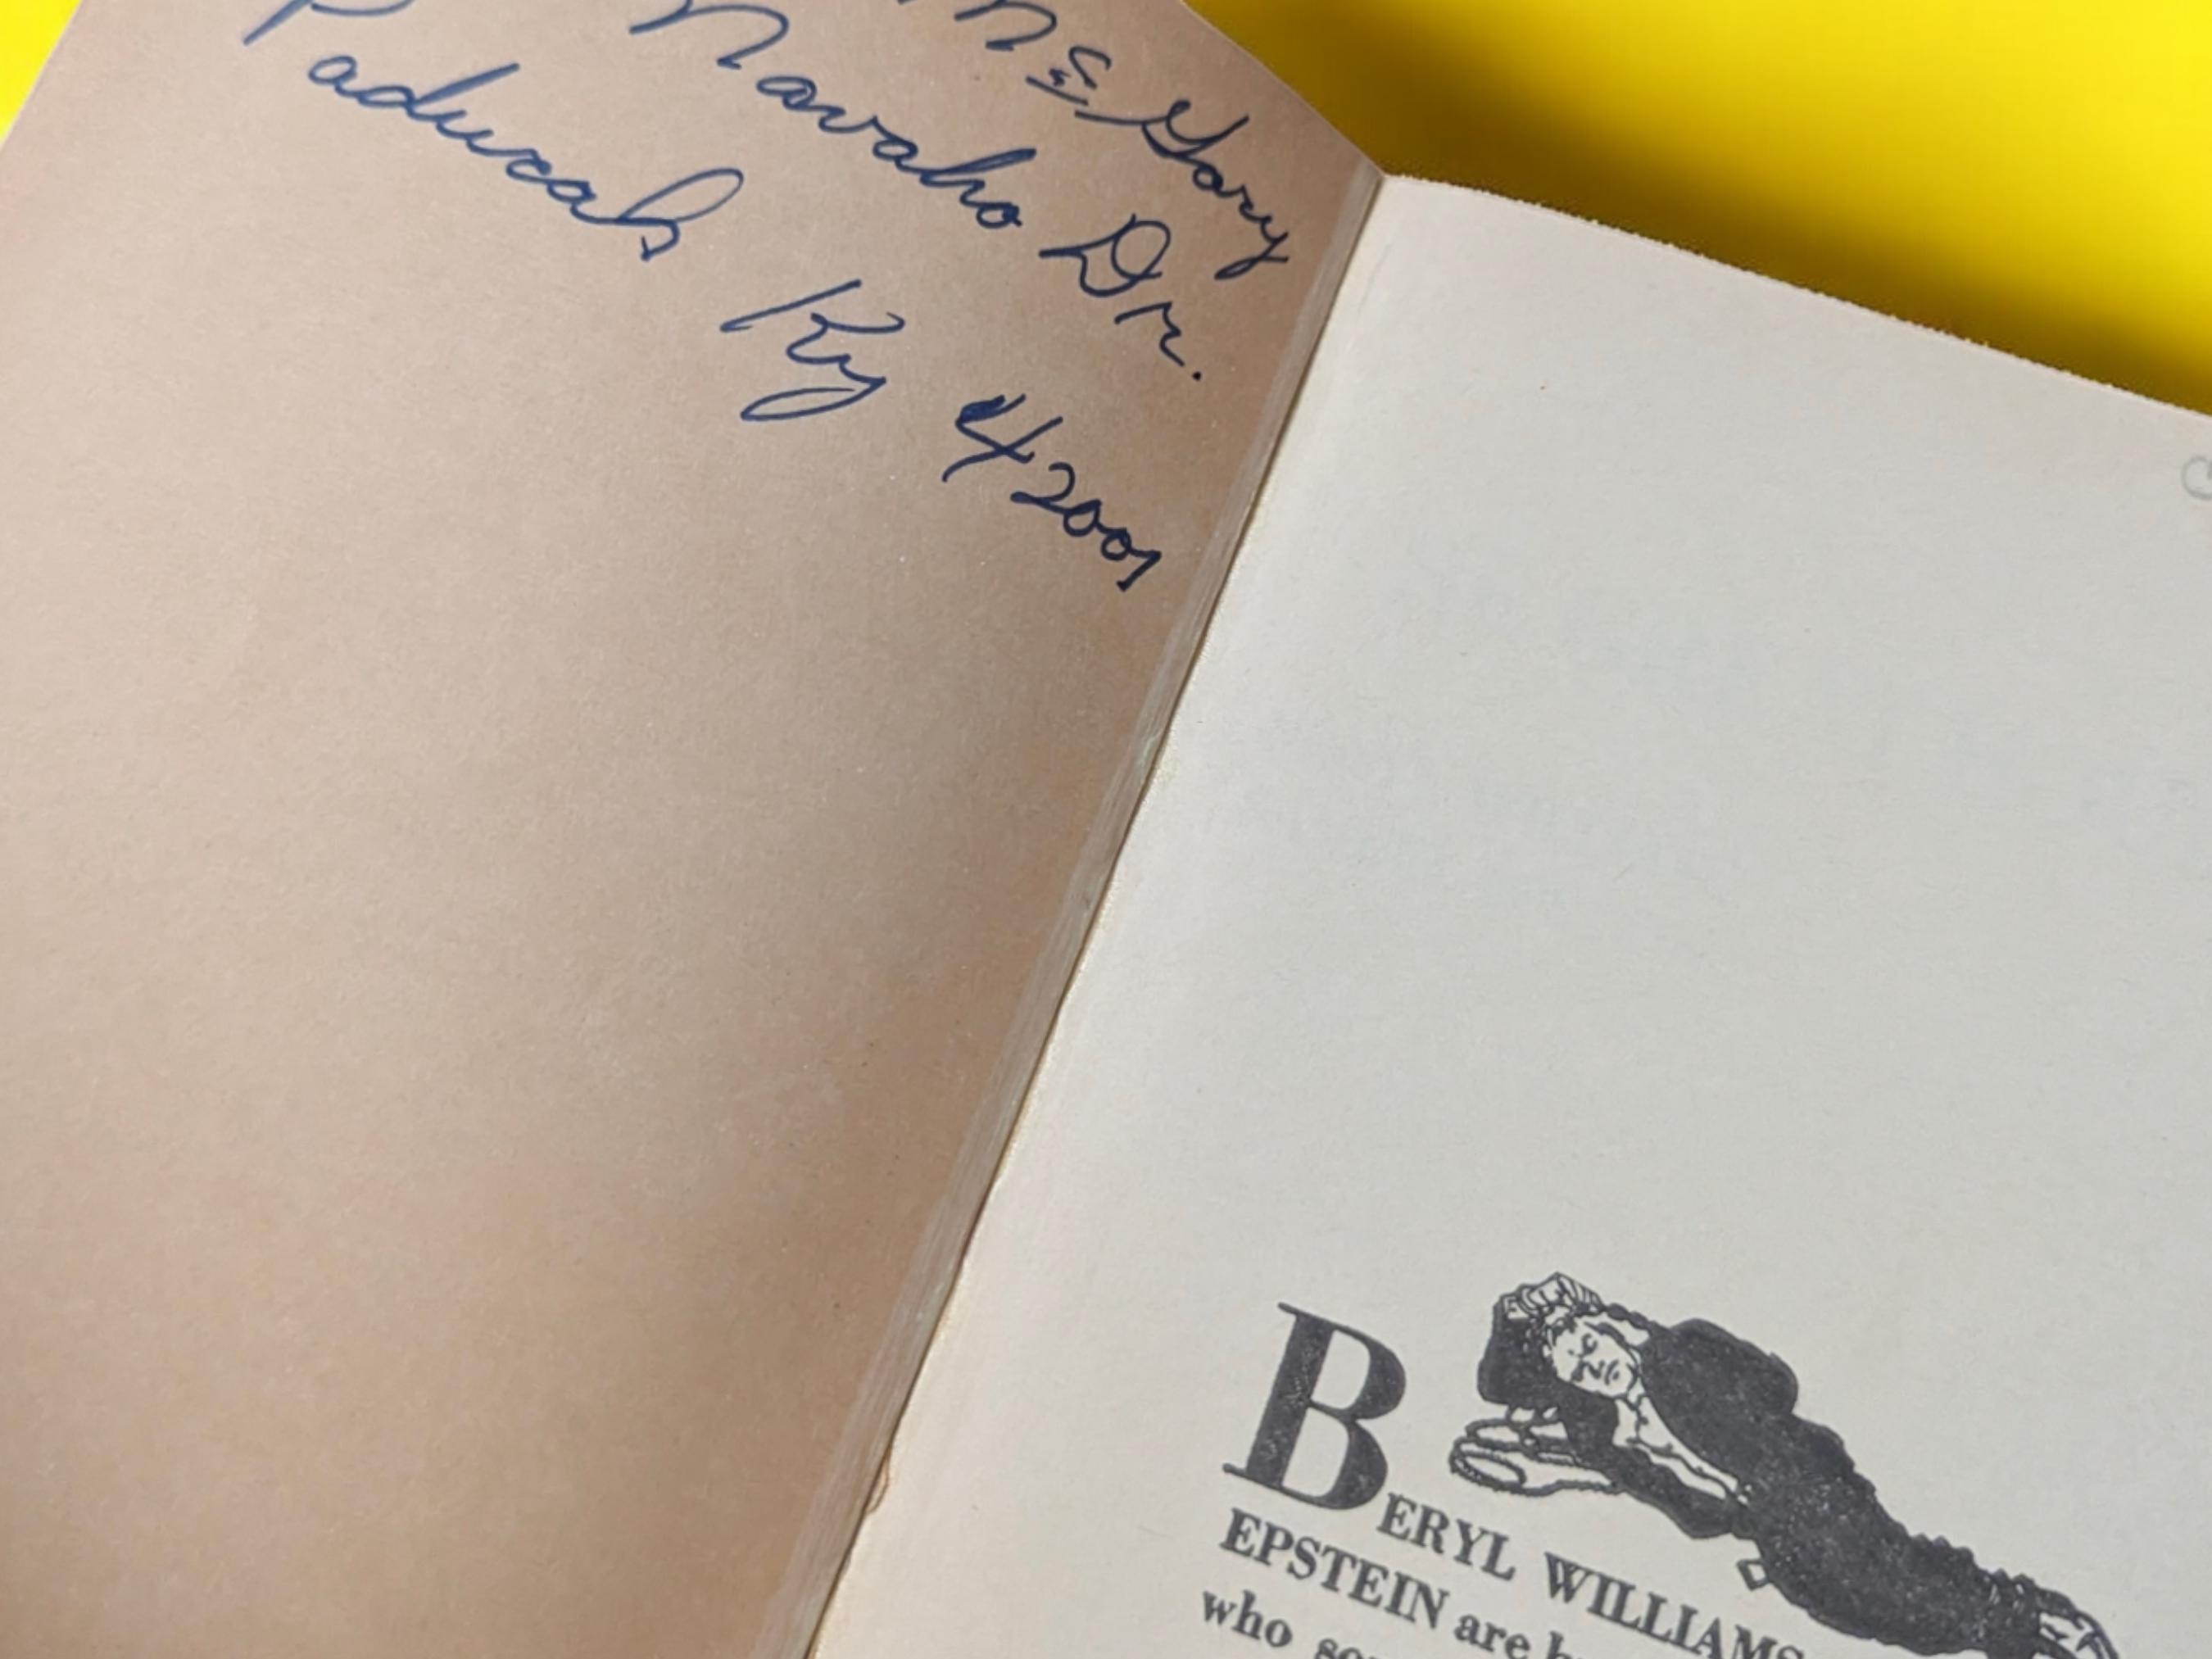 McGary
Navaho Dr.
Paducah Ky 42001
BERYL WILLIAMS
EPSTEIN are
who